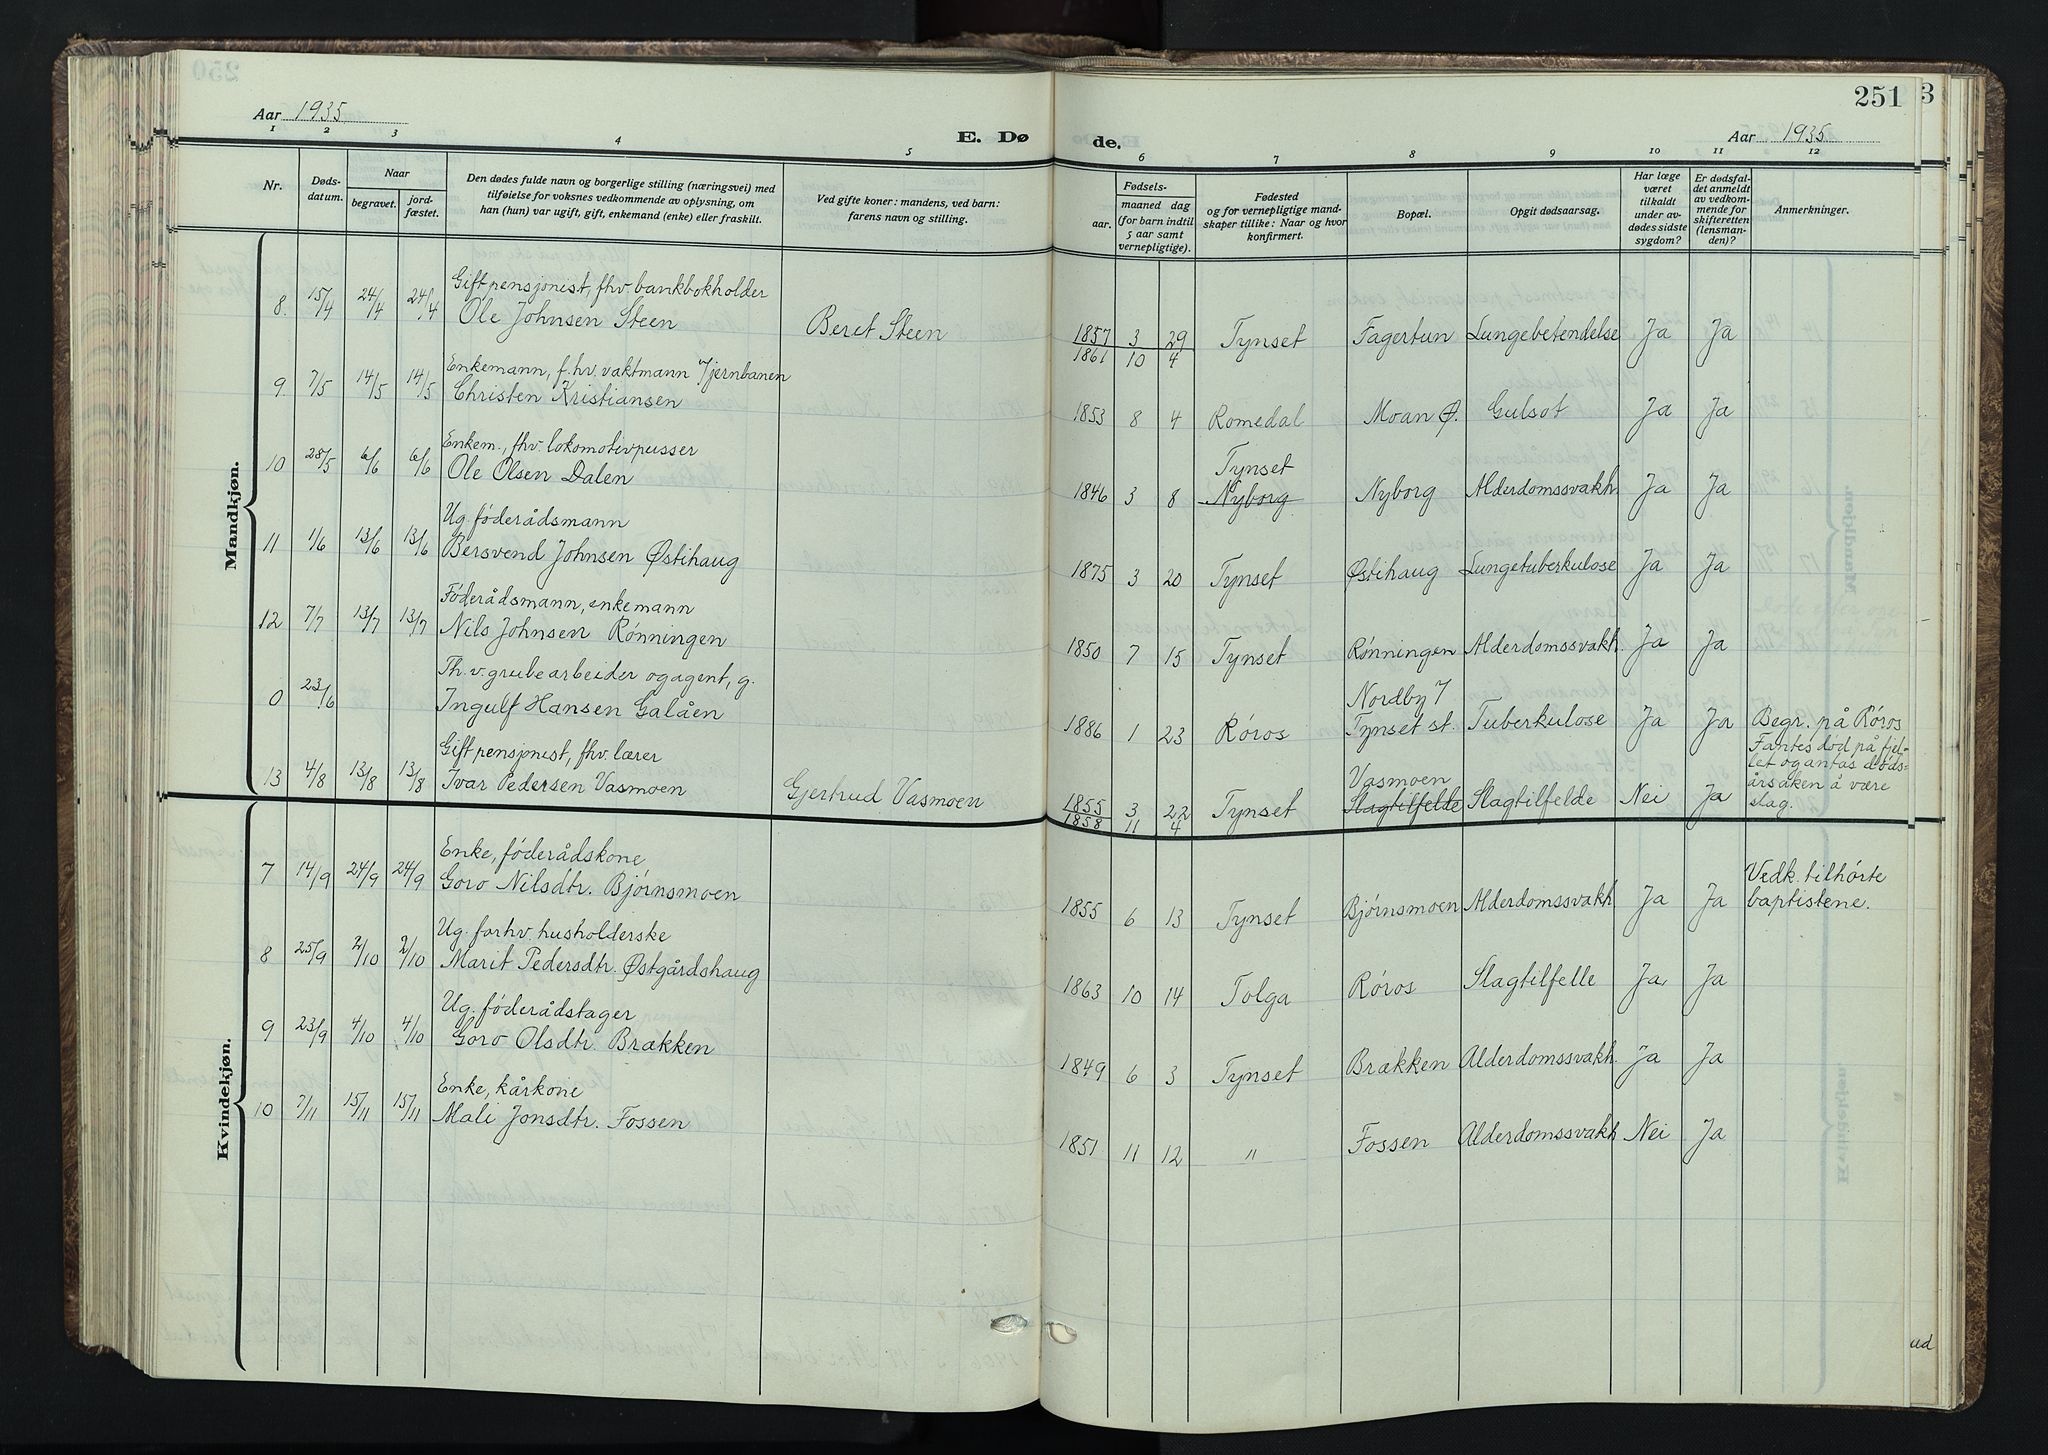 Aar 1935
E. Dø
de.
251
3
Aar 1935
1 2 3 4 5 6 7 8 9 10 11 12
Nr.
Døds-
datum.
Naar
begravet.
jord-
fæstet.
Den dødes fulde navn og borgerlige stilling (næringsvei) med
tilføielse for voksnes vedkommende av oplysning, om
han (hun) var ugift, gift, enkemand (enke) eller fraskilt.
Ved gifte koner: mandens, ved barn:
farens navn og stilling.
Fødsels-
aar.
maaned dag
(for barn indtil
5 aar samt
vernepligtige).
Fødested
og for vernepligtige mand-
skaper tillike: Naar og hvor
konfirmert.
Bopæl.
Opgit dødsaarsag.
Har læge
været
tilkaldt
under av-
dødes sidste
sygdom?
Er dødsfal-
det anmeldt
av vedkom-
mende for
skifteretten
(lensman-
den)?
Anmerkninger.
Mandkjøn.
Gift pensjonist, fhv. bankbokholder
8. 15/4 24/4 24/4 Ole Johnsen Steen Beret Steen 1857 3 29 Tynset Fagertun Lungebetendelse Ja Ja
1861 10 4
Enkemann, f.hv. vaktmann v/jernbanen
9. 7/5 14/5 14/5 Christen Kristiansen 1853 8 4 Romedal Moan Ø. Gulsot Ja Ja
Enkem., fhv. lokomotivpusser
Tynset
10 28/5 6/6 6/6 Ole Olsen Dalen 1846 3 8 Nyborg Nyborg Alderdomssvakh. Ja Ja
Ug. føderådsmann
11 1/6 13/6 13/6 Bersvend Johnsen Østihaug 1875 3 20 Tynset Østihaug Lungetuberkulose Ja Ja
Føderådsmann, enkemann
12 7/7 13/7 13/7 Nils Johnsen Rønningen 1850 7 15 Tynset Rønningen Alderdomssvakh. Ja Ja
Fh.v. grubearbeider og agent, g.
Nordby v/
0 23/6 Ingulf Hansen Galåen 1886 1 23 Røros Tynset st. Tuberkulose Ja Ja Begr. på Røros
Gift pensjonist, fhv. lærer
Vasmoen
13 4/8 13/8 13/8 Ivar Pedersen Vasmoen Gjertrud Vasmoen 1855 3 22 Tynset Slagtilfelde Slagtilfelde Nei Ja
1858 11 4
Fantes død på fjel-
let og antas døds-
årsaken å være
slag.
Kvindekjøn.
Enke, føderådskone
7 14/9 24/9 24/9 Goro Nilsdtr. Bjørnsmoen 1855 6 13 Tynset Bjørnsmoen Alderdomssvakh. Ja Ja
Vedk. tilhørte
baptistene.
Ug. forhv. husholderske
8 25/9 2/10 2/10 Marit Pedersdtr. Østgårdshaug 1863 10 14 Tolga Røros Slagtilfelle Ja Ja
Ug. føderådstager
9 23/9 4/10 4/10 Goro Olsdtr. Brækken 1849 6 3 Tynset Brækken Alderdomssvakh. Ja Ja
Enke, kårkone
10 7/11 15/11 15/11 Mali Jonsdtr. Fossen 1851 11 12 " Fossen Alderdomssvakh Nei Ja
ud